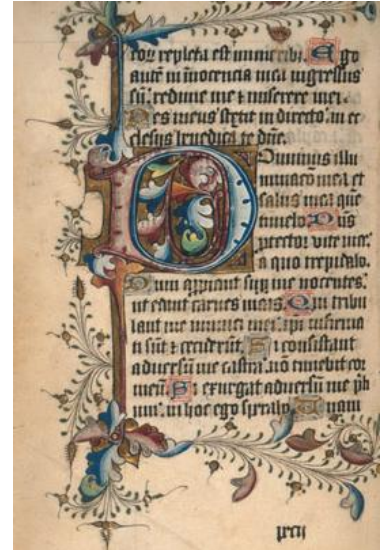 eoꝝ repleta est muneribꝰ. Ego
autē in inocencia mea ingressus
sū: redime me ⁊ miserere mei.
Pes meus stetit in directo: in ec
clesiis benedicā te dñe.
Dominus illu
minacō mea et
salus mea quē
timebo. Dñs
ꝓtector vite mee:
a quo trepidabo.
Dum appiant suꝑ me nocentes:
ut edant carnes meas. Qui tribu
lant me inimici mei: ipi infirma
ti sūt ⁊ ceciderūt. Si consistant
adversū me castra: nō timebit cor
meū. Si exurgat adversū me plı
um: in hoc ego sperabo. Unam
petij